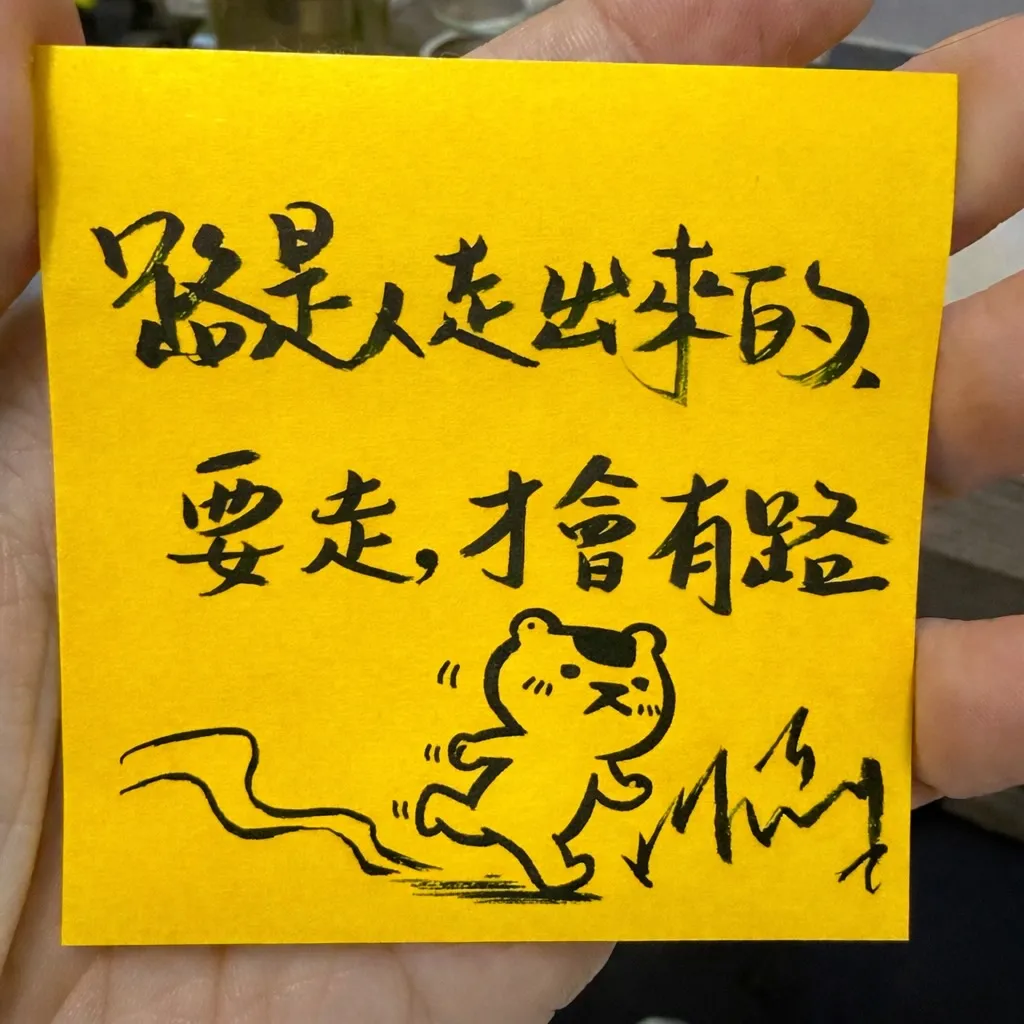 路是人走出來的、
要走,才會有路